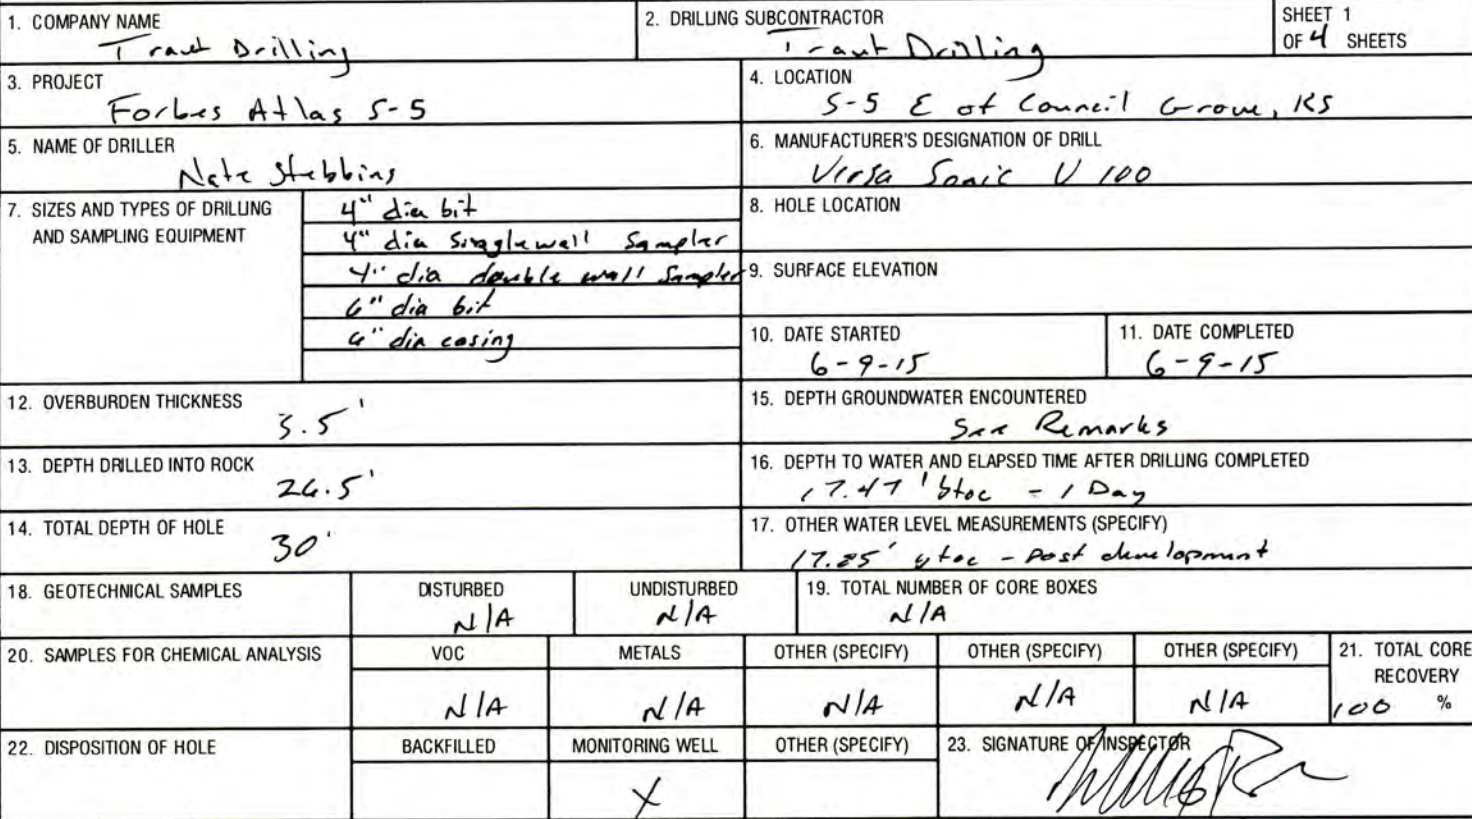 1. COMPANY NAME
Traut Drilling
2. DRILLING SUBCONTRACTOR
Traut Drilling
SHEET 1
OF 4 SHEETS
3. PROJECT
Forbes Atlas S-5
4. LOCATION
S-5 E of Council Grove, KS
5. NAME OF DRILLER
Nate Stebbins
6. MANUFACTURER'S DESIGNATION OF DRILL
Versa Sonic V 100
7. SIZES AND TYPES OF DRILLING
AND SAMPLING EQUIPMENT
4" dia bit
4" dia Singlewall Sampler
4" dia double wall Sampler
6" dia bit
6" dia casing
8. HOLE LOCATION
9. SURFACE ELEVATION
10. DATE STARTED
6-9-15
11. DATE COMPLETED
6-9-15
12. OVERBURDEN THICKNESS
3.5'
15. DEPTH GROUNDWATER ENCOUNTERED
See Remarks
13. DEPTH DRILLED INTO ROCK
26.5'
16. DEPTH TO WATER AND ELAPSED TIME AFTER DRILLING COMPLETED
17.47' btoc - 1 Day
14. TOTAL DEPTH OF HOLE
30'
17. OTHER WATER LEVEL MEASUREMENTS (SPECIFY)
17.85' btoc - Post development
18. GEOTECHNICAL SAMPLES
DISTURBED
N/A
UNDISTURBED
N/A
19. TOTAL NUMBER OF CORE BOXES
N/A
20. SAMPLES FOR CHEMICAL ANALYSIS
VOC
METALS
OTHER (SPECIFY)
OTHER (SPECIFY)
OTHER (SPECIFY)
21. TOTAL CORE
RECOVERY
N/A
N/A
N/A
N/A
N/A
100 %
22. DISPOSITION OF HOLE
BACKFILLED
MONITORING WELL
X
OTHER (SPECIFY)
23. SIGNATURE OF INSPECTOR